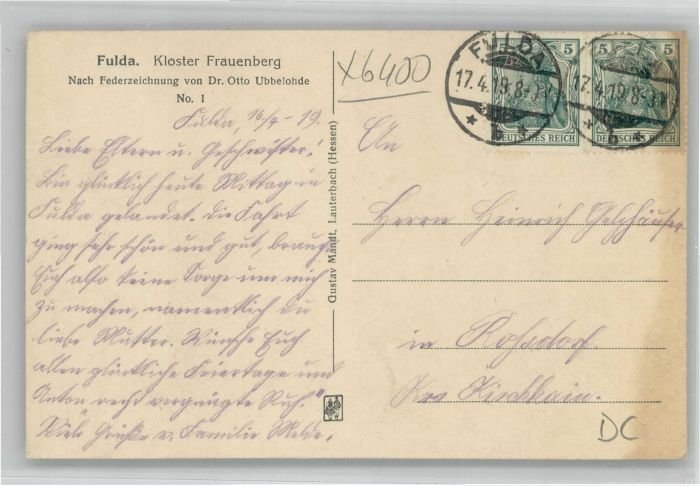 Fulda. Kloster Frauenberg
Nach Federzeichnung von Dr. Otto Ubbelohde
No. 1
Fulda, 16/4 – 19.
Liebe Eltern u. Geschwister!
Bin glücklich heute Mittag in
Fulda gelandet. Die Fahrt
ging sehr schön und gut, braucht
Euch also keine Sorge um mich
zu machen, namentlich du
liebe Mutter. Wünsche Euch
allen glückliche Feiertage und
Anton recht vergnügte
Viele Grüße v. Familie
Gustav Mandt, Lauterbach (Hessen)
x6400
FULDA
17.4.19.8-9V
* b *
5
DEUTSCHES REICH
17.4.19.8-9V
* b *
5
DEUTSCHES REICH
An
Herrn Heinrich
in Roßdorf
Krs Kirchhain.
DC